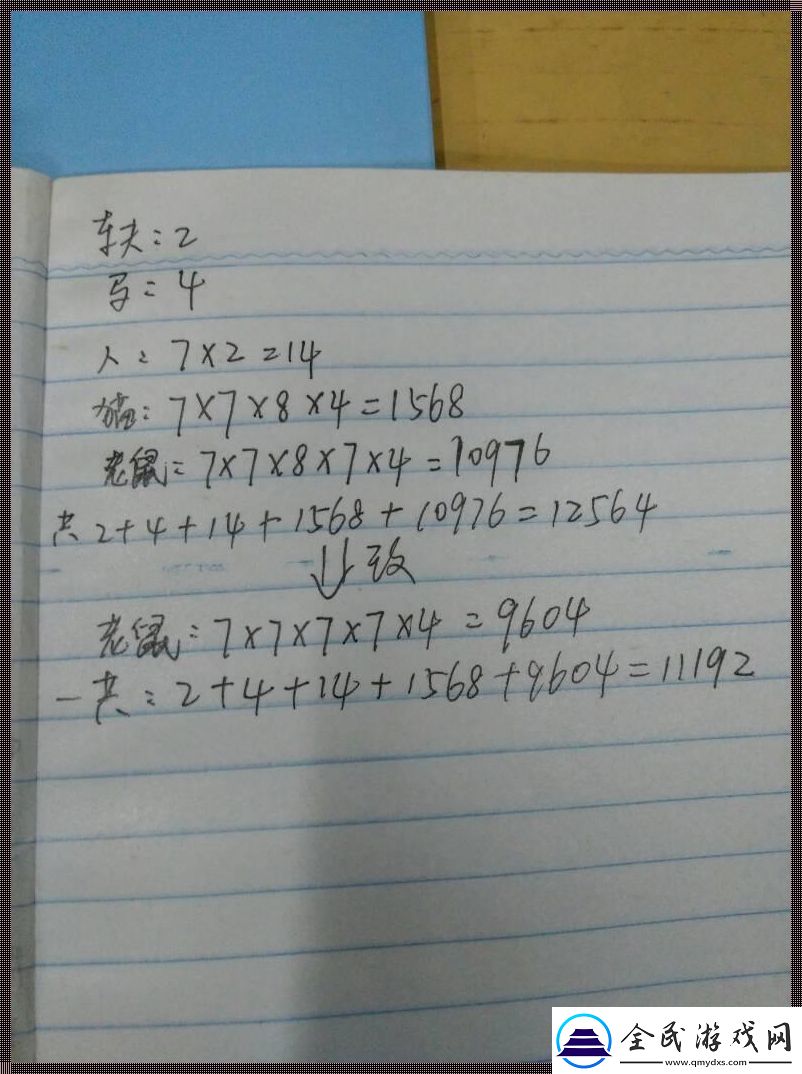 车夫:2
马:4
人:7×2=14
猫:7×7×8×4=1568
老鼠:7×7×8×7×4=10976
共2+4+14+1568+10976=12564
改
老鼠:7×7×7×7×4=9604
一共:2+4+14+1568+9604=11192
全民游戏网
www.qmydxs.com